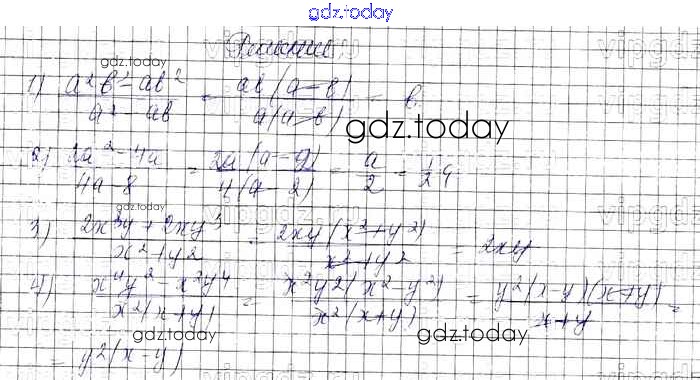 gdz.today
Решение
gdz.today
1) (a²b - ab²)/(a² - ab) = ab(a-b)/a(a-b) = b.
gdz.today
2) (2a² - 4a)/(4a - 8) = 2a(a-2)/4(a-2) = a/2 = 1/2 a
gdz.today
3) (2x³y + 2xy³)/(x² + y²) = 2xy(x²+y²)/(x²+y²) = 2xy
4) (x⁴y² - x²y⁴)/x²(x+y) = x²y²(x²-y²)/x²(x+y) = y²(x-y)(x+y)/(x+y) =
gdz.today
gdz.today
= y²(x-y)